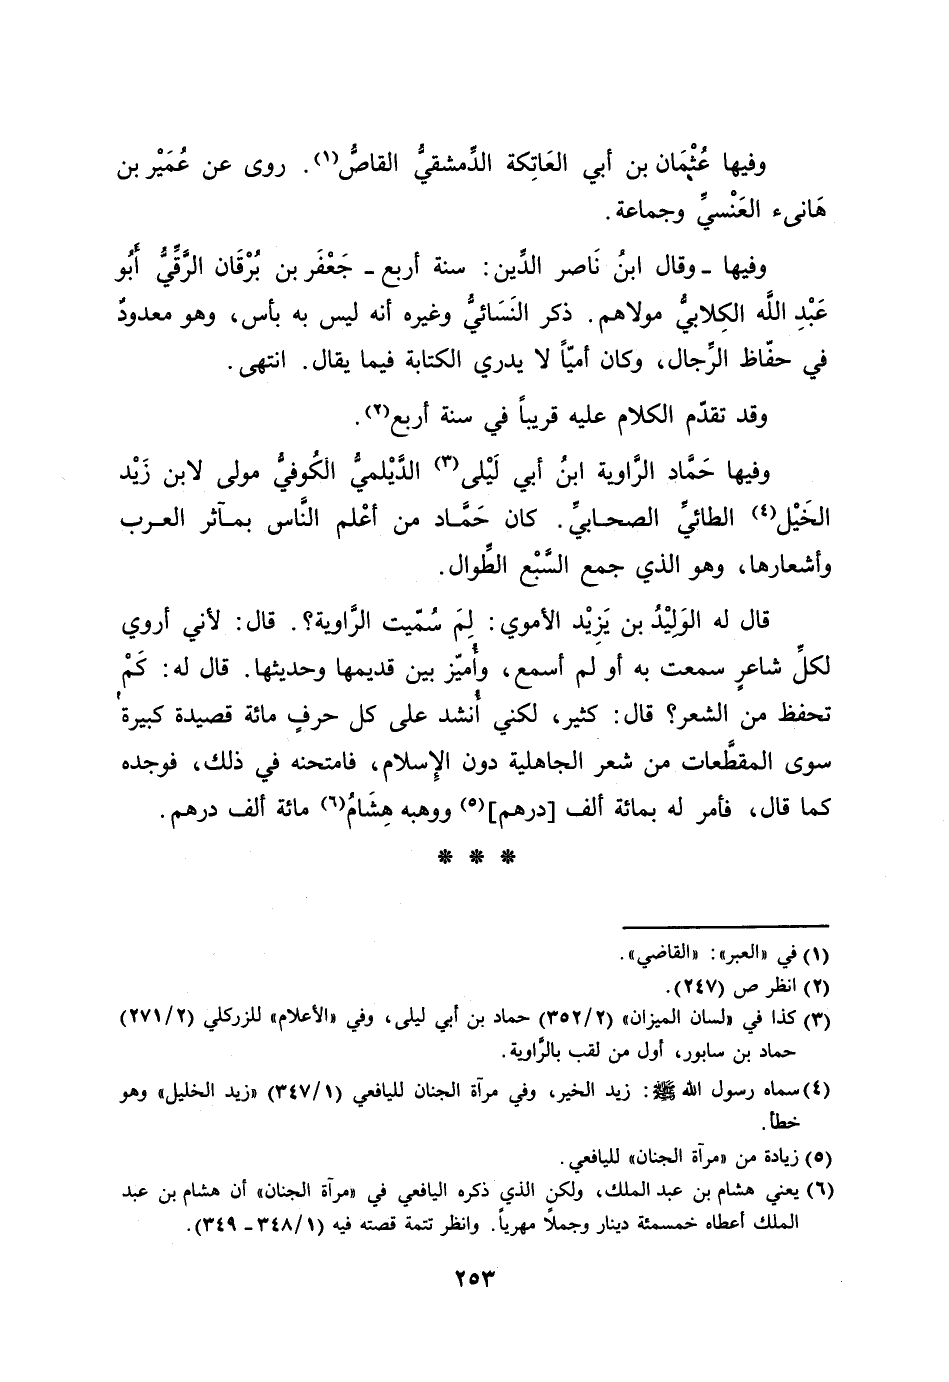 وفيها عُثْمَان بن أبي العَاتِكة الدِّمشقيُّ القاصُّ(١). روى عن عُمَيْر بن
هَانىء العَنْسيِّ وجماعة.
وفيها ـ وقال ابنُ نَاصر الدِّين: سنة أربع ـ جَعْفَر بن بُرْقَان الرَّقِّيُّ أَبُو
عَبْدِ اللَّه الكِلابيُّ مولاهم. ذكر النَسَائيُّ وغيره أنه ليس به بأس، وهو معدودٌ
في حفّاظ الرِّجال، وكان أميّاً لا يدري الكتابة فيما يقال. انتهى.
وقد تقدّم الكلام عليه قريباً في سنة أربع(٢).
وفيها حَمَّاد الرَّاوية ابنُ أبي لَيْلى(٣) الدَّيْلميُّ الكُوفيُّ مولى لابن زَيْد
الخَيْل(٤) الطائيِّ الصحابيِّ. كان حَمَّاد من أعْلم النَّاس بمآثر العرب
وأشعارها، وهو الذي جمع السَّبْع الطِّوال.
قال له الوَلِيْدُ بن يَزِيْد الأموي: لِمَ سُمّيت الرَّاوية؟. قال: لأني أروي
لكلِّ شاعرٍ سمعت به أو لم أسمع، وأُميّز بين قديمها وحديثها. قال له: كَمْ
تحفظ من الشعر؟ قال: كثير، لكني أُنشد على كل حرفٍ مائة قصيدة كبيرة
سوى المقطَّعات من شعر الجاهلية دون الإِسلام، فامتحنه في ذلك، فوجده
كما قال، فأمر له بمائة ألف [درهم](٥) ووهبه هِشَامُ(٦) مائة ألف درهم.
* * *
(١) في «العبر»: «القاضي».
(٢) انظر ص (٢٤٧).
(٣) كذا في «لسان الميزان» (٣٥٢/٢) حماد بن أبي ليلى، وفي «الأعلام» للزركلي (٢٧١/٢)
حماد بن سابور، أول من لقب بالرَّاوية.
(٤) سماه رسول الله ﷺ: زيد الخير، وفي مرآة الجنان لليافعي (٣٤٧/١) «زيد الخليل» وهو
خطأ.
(٥) زيادة من «مرآة الجنان» لليافعي.
(٦) يعني هشام بن عبد الملك، ولكن الذي ذكره اليافعي في «مرآة الجنان» أن هشام بن عبد
الملك أعطاه خمسمئة دينار وجملاً مهرياً. وانظر تتمة قصته فيه (٣٤٨/١ ـ ٣٤٩).
٢٥٣